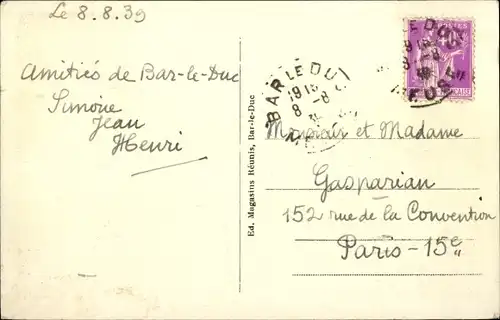 Le 8.8.39
Amitiés de Bar-le-Duc
Simone
Jean
Henri
Ed. Magasins Réunis, Bar-le-Duc
BAR LE DUC
1918
8 -8
Monsieur et Madame
Gasparian
152 rue de la Convention
Paris - 15e